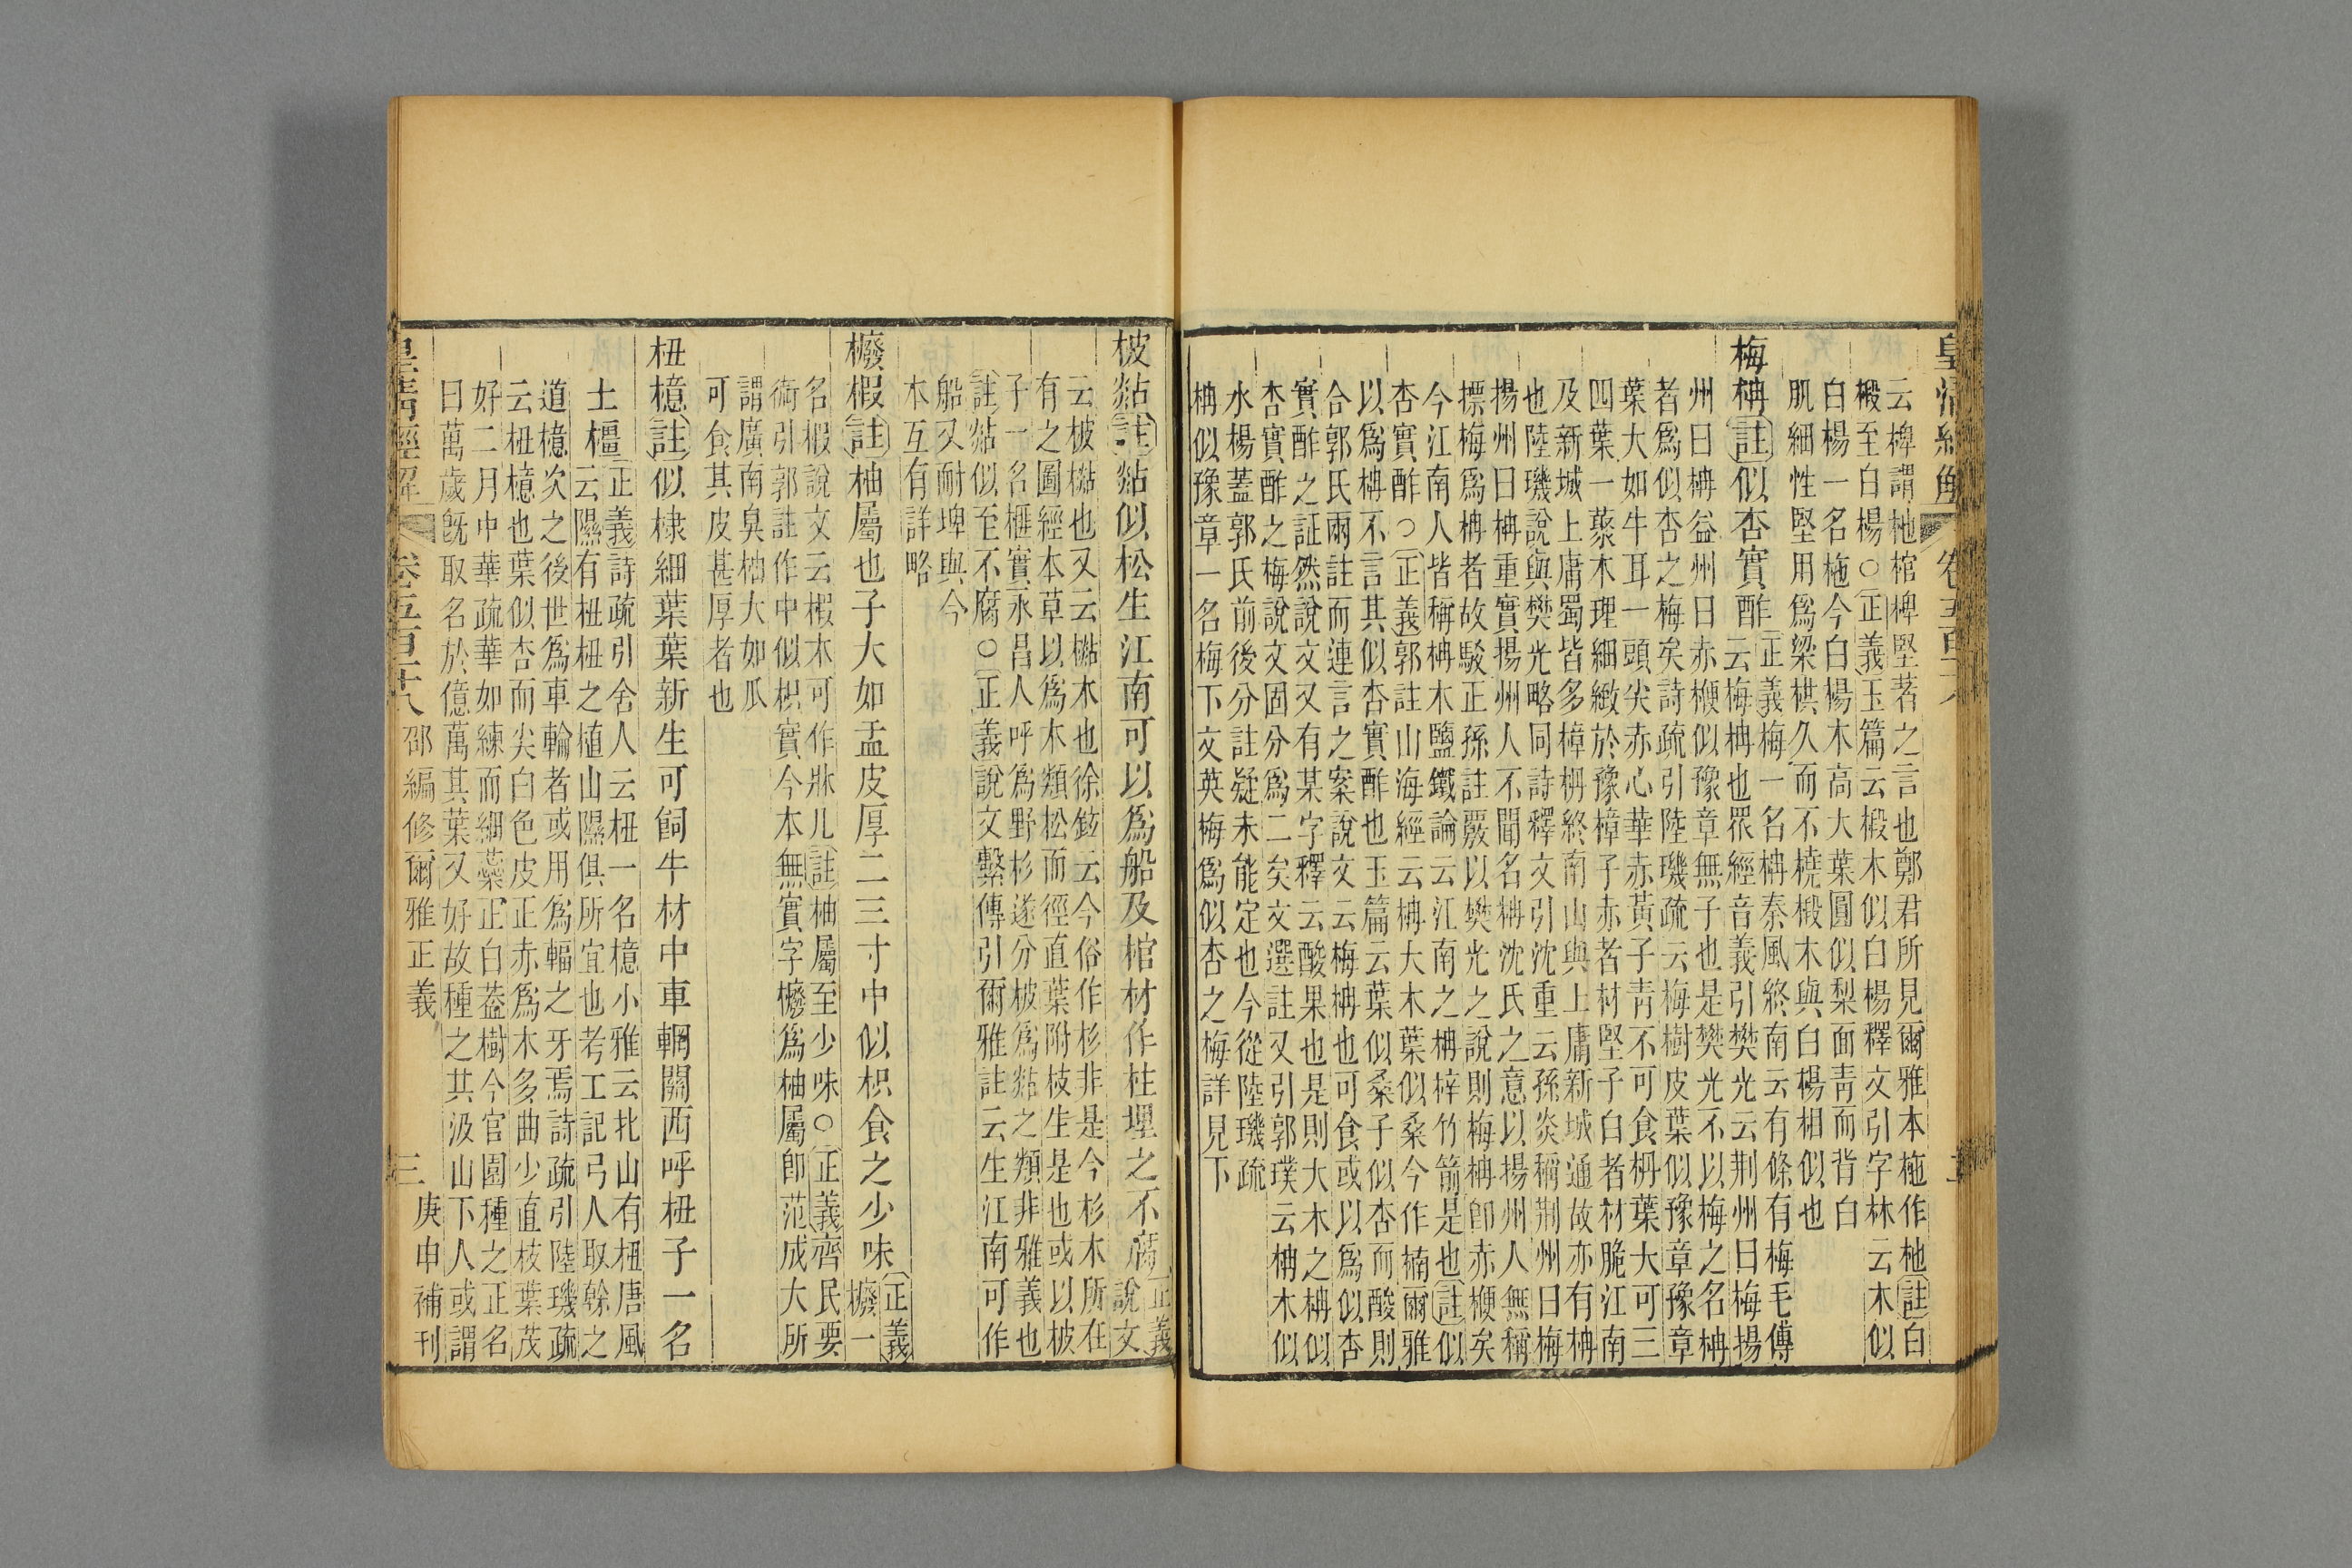 皇清經解
卷五百十八
云椑謂杝棺椑堅著之言也鄭君所見爾雅本椸作杝註白
椴至白楊○正義玉篇云椴木似白楊釋文引字林云木似
白楊一名椸今白楊木高大葉圓似梨面青而背白
肌細性堅用爲梁栱久而不橈椴木與白楊相似也
梅柟註似杏實酢
正義梅一名柟秦風終南云有條有梅毛傳
云梅柟也眾經音義引樊光云荆州曰梅揚
州曰柟益州曰赤楩似豫章無子也是樊光不以梅之名柟
者爲似杏之梅矣詩疏引陸璣疏云梅樹皮葉似豫章豫章
葉大如牛耳一頭尖赤心華赤黃子青不可食柟葉大可三
四葉一藂木理細緻於豫樟子赤者材堅子白者材脆江南
及新城上庸蜀皆多樟柟終南山與上庸新城通故亦有柟
也陸璣說與樊光略同詩釋文引沈重云孫炎稱荆州曰梅
揚州曰柟重實揚州人不聞名柟沈氏之意以揚州人無稱
摽梅爲柟者故駁正孫註覈以樊光之說則梅柟卽赤楩矣
今江南人皆稱柟木鹽鐵論云江南之柟梓竹箭是也註似
杏實酢○正義郭註山海經云柟大木葉似桑今作楠爾雅
以爲柟不言其似杏實酢也玉篇云葉似桑子似杏而酸則
合郭氏爾註而連言之案說文云梅柟也可食或以爲似杏
實酢之証然說文又有某字釋云酸果也是則大木之柟似
杏實酢之梅說文固分爲二矣文選註又引郭璞云柟木似
水楊蓋郭氏前後分註疑未能定也今從陸璣疏
柟似豫章一名梅下文英梅爲似杏之梅詳見下
柀煔註煔似松生江南可以爲船及棺材作柱埋之不腐
正義
說文
云柀檆也又云檆木也徐鉉云今俗作杉非是今杉木所在
有之圖經本草以爲木類松而徑直葉附枝生是也或以柀
子一名榧實永昌人呼爲野杉遂分柀爲煔之類非雅義也
註煔似至不腐○正義說文繫傳引爾雅註云生江南可作
船又耐埤與今
本互有詳略
櫠椵註柚屬也子大如盂皮厚二三寸中似枳食之少味
正義
櫠一
名椵說文云椵木可作牀几註柚屬至少味○正義齊民要
術引郭註作中似枳實今本無實字櫠爲柚屬卽范成大所
謂廣南臭柚大如瓜
可食其皮甚厚者也
杻檍註似棣細葉葉新生可飼牛材中車輞關西呼杻子一名
土橿
正義詩疏引舍人云杻一名檍小雅云北山有杻唐風
云隰有杻杻之植山隰俱所宜也考工記弓人取榦之
道檍次之後世爲車輪者或用爲輻之牙焉詩疏引陸璣疏
云杻檍也葉似杏而尖白色皮正赤爲木多曲少直枝葉茂
好二月中華疏華如練而細蘂正白蓋樹今官園種之正名
曰萬歲旣取名於億萬其葉又好故種之共汲山下人或謂
皇清經解
卷五百十八
邵編修爾雅正義
三
庚申補刊